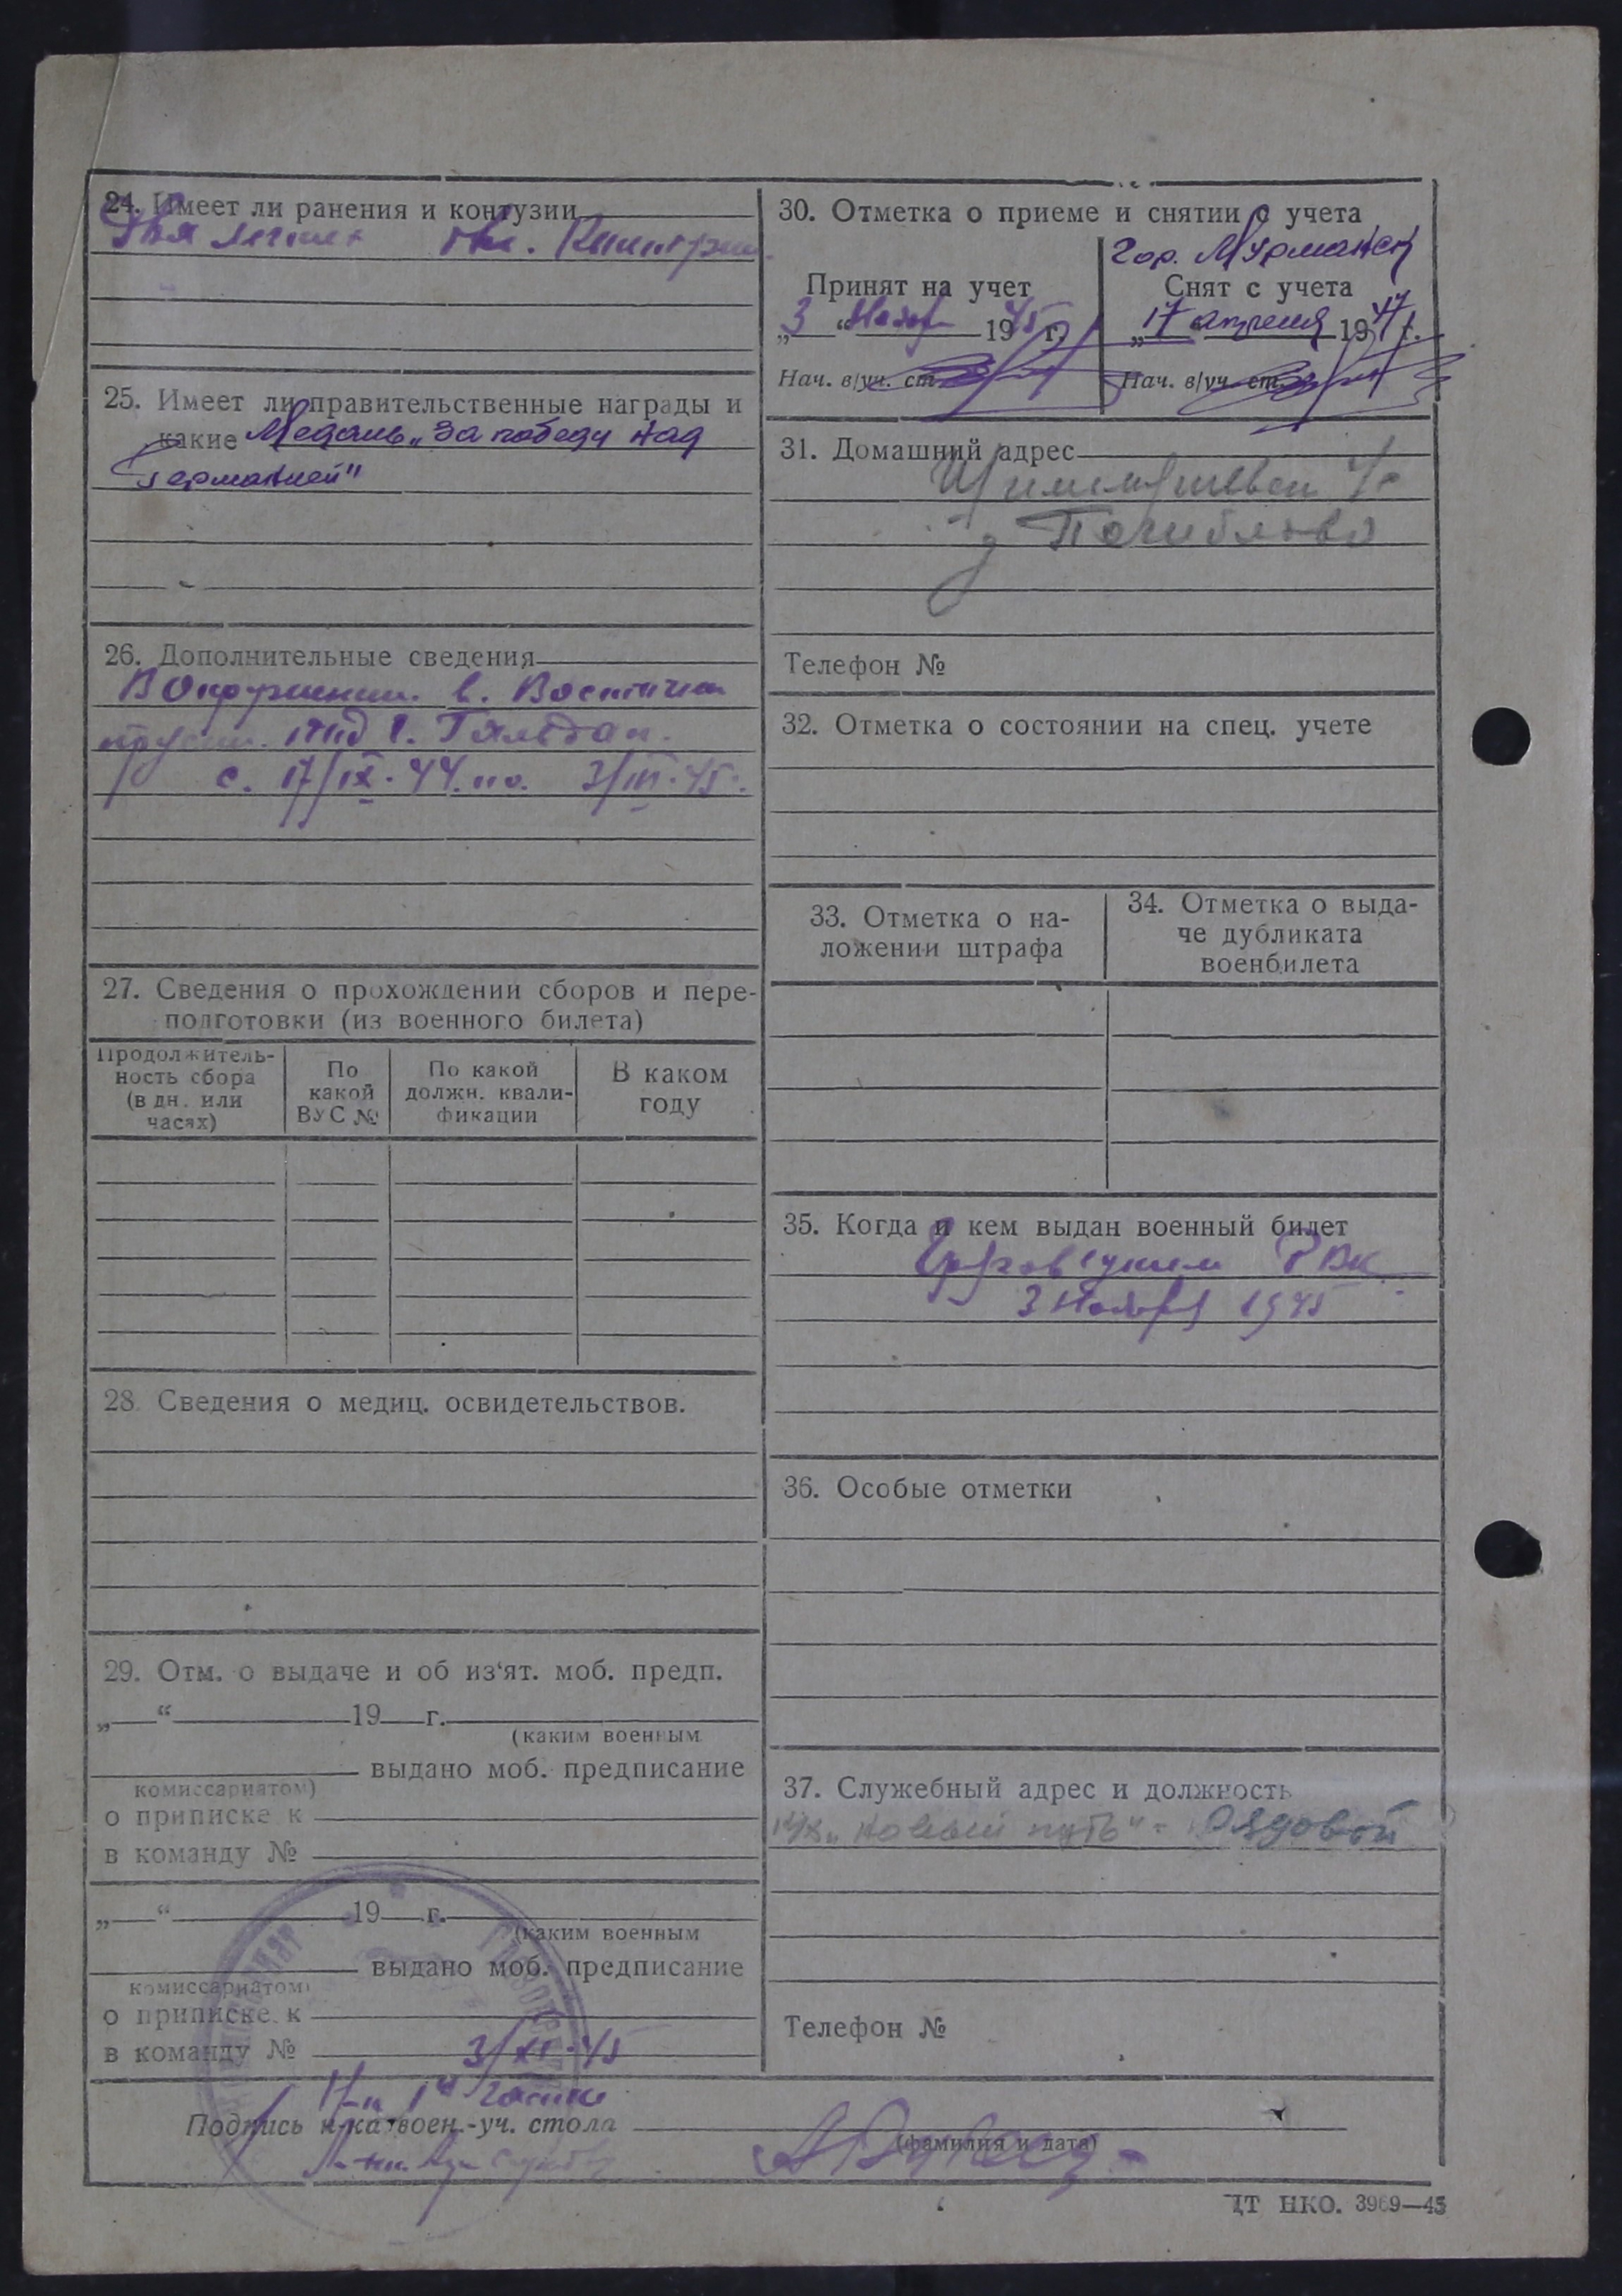 24. Имеет ли ранения и контузии
25. Имеет ли правительственные награды и
какие Медаль „За победу над
Германией"
26. Дополнительные сведения
В Окружении. в. Восточн
прусии. под г.
с. 17/IX. 44. по. 3/III. 45.
27. Сведения о прохождении сборов и пере-
подготовки (из военного билета)
Продолжитель-
ность сбора
(в дн. или
часах)
По
какой
ВУС №
По какой
должн. квали-
фикации
В каком
году
28. Сведения о медиц. освидетельствов.
29. Отм. о выдаче и об из'ят. моб. предп.
„ “ 19 г.
(каким военным
выдано моб. предписание
комиссариатом)
о приписке к
в команду №
„ “ 19 г.
(каким военным
выдано моб. предписание
комиссариатом)
о приписке к
в команду №
3/XI-45
30. Отметка о приеме и снятии с учета
Гор. Мурманск
Принят на учет
„3“ Ноябр 1945 г.
Нач. в/уч. ст.
Снят с учета
„17 апреля 1947 г.
Нач. в/уч. ст.
31. Домашний адрес
Телефон №
32. Отметка о состоянии на спец. учете
33. Отметка о на-
ложении штрафа
34. Отметка о выда-
че дубликата
военбилета
35. Когда и кем выдан военный билет
РВК
3 Ноября 1945
36. Особые отметки
37. Служебный адрес и должность
„Новый путь" - Рядовой
Телефон №
Н-к 1й части
Подпись н-ка воен.-уч. стола
(фамилия и дата)
ЦТ НКО. 3969—45